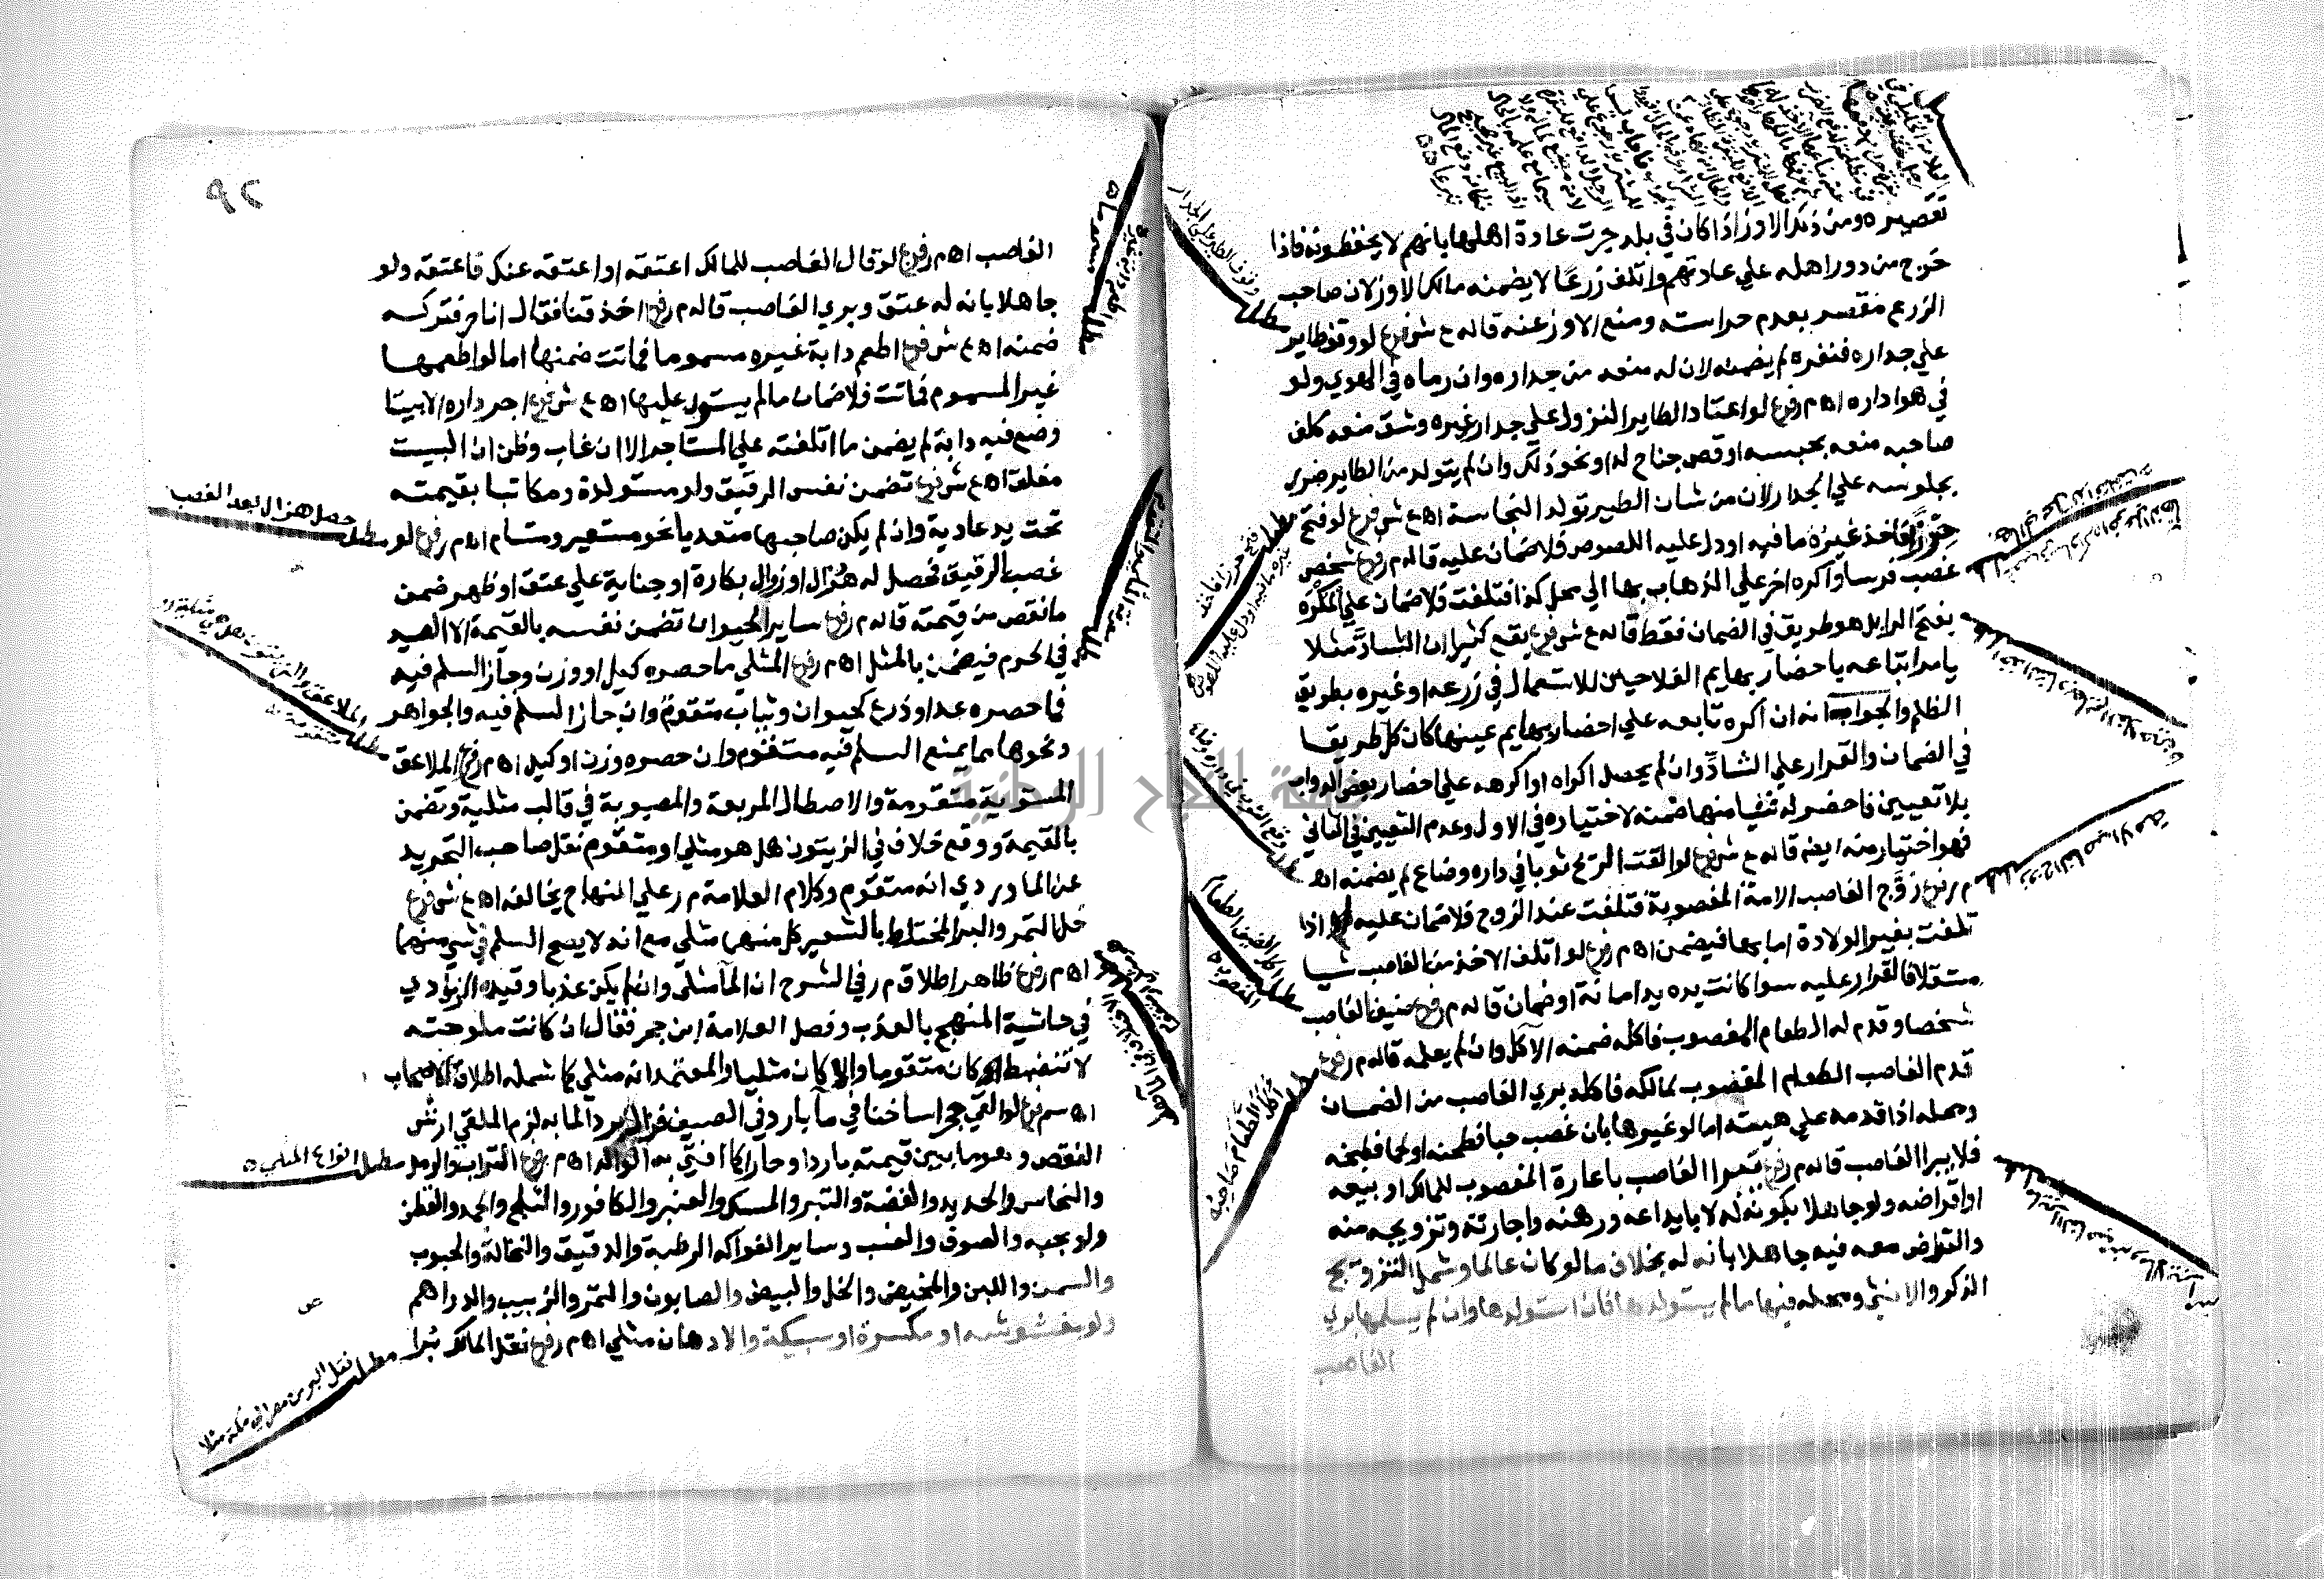 تقصيره ومن ذلك الاوز اذا كان في بلد جرت عادة اهلها بانهم لا يحفظونه فاذا
خرج من دور اهله علي عادتهم واتلف زرعا لا يضمنه مالك الاوز لان صاحب
الزرع مقصر بعدم حراسته ومنع الاوز عنه قاله ع ش فرع لو وقف طاير
علي جداره فنفره لم يضمنه لان له منعه من جداره وان رماه في الهوي ولو
في هوا داره اه م ر فرع لو اعتاد الطاير النزول علي جدار غيره وشق منعه كلف
صاحبه منعه بحبسه او قص جناح له او نحو ذلك وان لم يتولد من الطاير ضرر
بجلوسه علي الجدار لان من شان الطير تولد النجاسة اه ع ش فرع لو فتح
حرزا فاخذ غيره ما فيه او دل عليه اللصوص فلا ضمان عليه قاله م ر فرع شخص
غصب فرسا واكره اخر علي الذهاب بها الي محل كذا فتلفت فلا ضمان علي المكره
بفتح الرا بل هو طريق في الضمان فقط قاله ع ش فرع يقع كثيرا ان الشاد مثلا
يامر اتباعه باحضار بهايم الفلاحين للاستعمال في زرعه او غيره بطريق
الظلم والجواب انه ان اكره تابعه علي احضار بهايم عينها كان كل طريقا
في الضمان والقرار علي الشاد وان لم يحصل اكراه او اكرهه علي احضار بعض الدواب
بلا تعيين فاحضر له شيا منها ضمنه لاختياره في الاول وعدم التعيين في الثاني
فهو اختيار منه ايضا قاله ع ش فرع لو القت الريح ثوبا في داره وضاع لم يضمنه اه
م ر فرع زوج الغاصب الامة المغصوبة فتلفت عند الزوج فلا ضمان عليه اذا
تلفت بغير الولادة اما بها فيضمن اه م ر فرع لو اتلف الاخذ من الغاصب شيا
مستقلا فالقرار عليه سوا كانت يده يد امانة او ضمان قاله م ر فرع ضيف الغاصب
شخصا وقدم له الطعام المغصوب فاكله ضمنه الاكل وان لم يعلمه قاله م ر فرع
قدم الغاصب الطعام المغصوب لمالكه فاكله بري الغاصب من الضمان
ومحله اذا قدمه علي هيئته اما لو غيرها بان غصب حبا فطحنه او لحما فطبخه
فلا يبرا الغاصب قاله م ر فرع يبرا الغاصب باعارة المغصوب للمالك او بيعه
او اقراضه ولو جاهلا بكونه له لا بايداعه ورهنه واجارته وتزويجه منه
والقراض معه فيه جاهلا بانه له بخلاف ما لو كان عالما وشمل التزويج
الذكر والانثي ومحله فيها ما لم يستولدها فان استولدها وان لم يسلمها بري
الغاصب
وقوف الطير علي الجدار
مطلب
فتح حرز فاخذ
غيره ما فيه او دل عليه اللصوص
اكل الضيف الطعام
المغصوب
اكل الطعام صاحبه
تزويج الغاصب الامة
٩٢
الغاصب اه م ر فرع لو قال الغاصب للمالك اعتقه او اعتقه عنك فاعتقه ولو
جاهلا بانه له عتق وبري الغاصب قاله م ر فرع اخذ قنا فقال انا حر فتركه
ضمنه اه ع ش فرع اطعم دابة غيره مسموما فماتت ضمنها اما لو اطعمها
غير المسموم فماتت فلا ضمان ما لم يستول عليها اه ع ش فرع اجر داره الا بيتا
وضع فيه دابة لم يضمن ما اتلفته علي المستاجر الا ان غاب وظن ان البيت
مغلق اه ع ش فرع تضمن نفس الرقيق ولو مستولدة ومكاتبا بقيمته
تحت يد عادية وان لم يكن صاحبها متعديا نحو مستعير ومستام اه م ر فرع لو
غصب الرقيق فحصل له هزال او زوال بكارة او جناية علي عتق او ظهر ضمن
ما نقص من قيمته قاله م ر فرع ساير الحيوان تضمن نفسه بالقيمة الا الصيد
في الحرم فيضمن بالمثل اه م ر فرع المثلي ما حصره كيل او وزن وجاز السلم فيه
فما حصره عد او ذرع كحيوان وثياب متقوم وان جاز السلم فيه والجواهر
ونحوها مما يمنع السلم فيه متقوم وان حصره وزن او كيل اه م ر فرع الملاعق
المستوية متقومة والاصطال المربعة والمصبوبة في قالب مثلية وتضمن
بالقيمة ووقع خلاف في الزيتون هل هو مثلي او متقوم نقل صاحب التجريد
عن الماوردي انه متقوم وكلام العلامة م ر علي المنهاج يخالفه اه ع ش فرع
خل التمر والبر المختلط بالشعير كل منهما مثلي مع انه لا يصح السلم في شي منهما
اه م ر فرع ظاهر اطلاق م ر في الشرح ان الما مثلي وان لم يكن عذبا وقيده الزيادي
في حاشية المنهج بالعذب وفصل العلامة ابن حجر فقال ان كانت ملوحته
لا تنضبط كان متقوما والا كان مثليا والمعتمد انه مثلي كما شمله اطلاق الاصحاب
اه سم فرع لو القي حجرا ساخنا في ما بارد في الصيف فزال برد الما به لزم الملقي ارش
النقص وهو ما بين قيمته باردا وحارا كما افتي به الوالد اه م ر فرع التراب والرمل
والنحاس والحديد والفضة والتبر والمسك والعنبر والكافور والثلج والجمد والقطن
ولو بحبه والصوف والعنب وساير الفواكه الرطبة والدقيق والنخالة والحبوب
والسمن واللبن والمخيض والخل والبيض والصابون والتمر والزبيب والدراهم
ولو مغشوشة او مكسرة او سبيكة والادهان مثلي اه م ر فرع نقل المالك برا
مطلب
اطعم دابة غيره
مسموما
مطلب حصل هزال بعد الغصب
مطلب الملاعق
مطلب انواع المثلي
مطلب نقل البر من مصر الي مكة مثلا